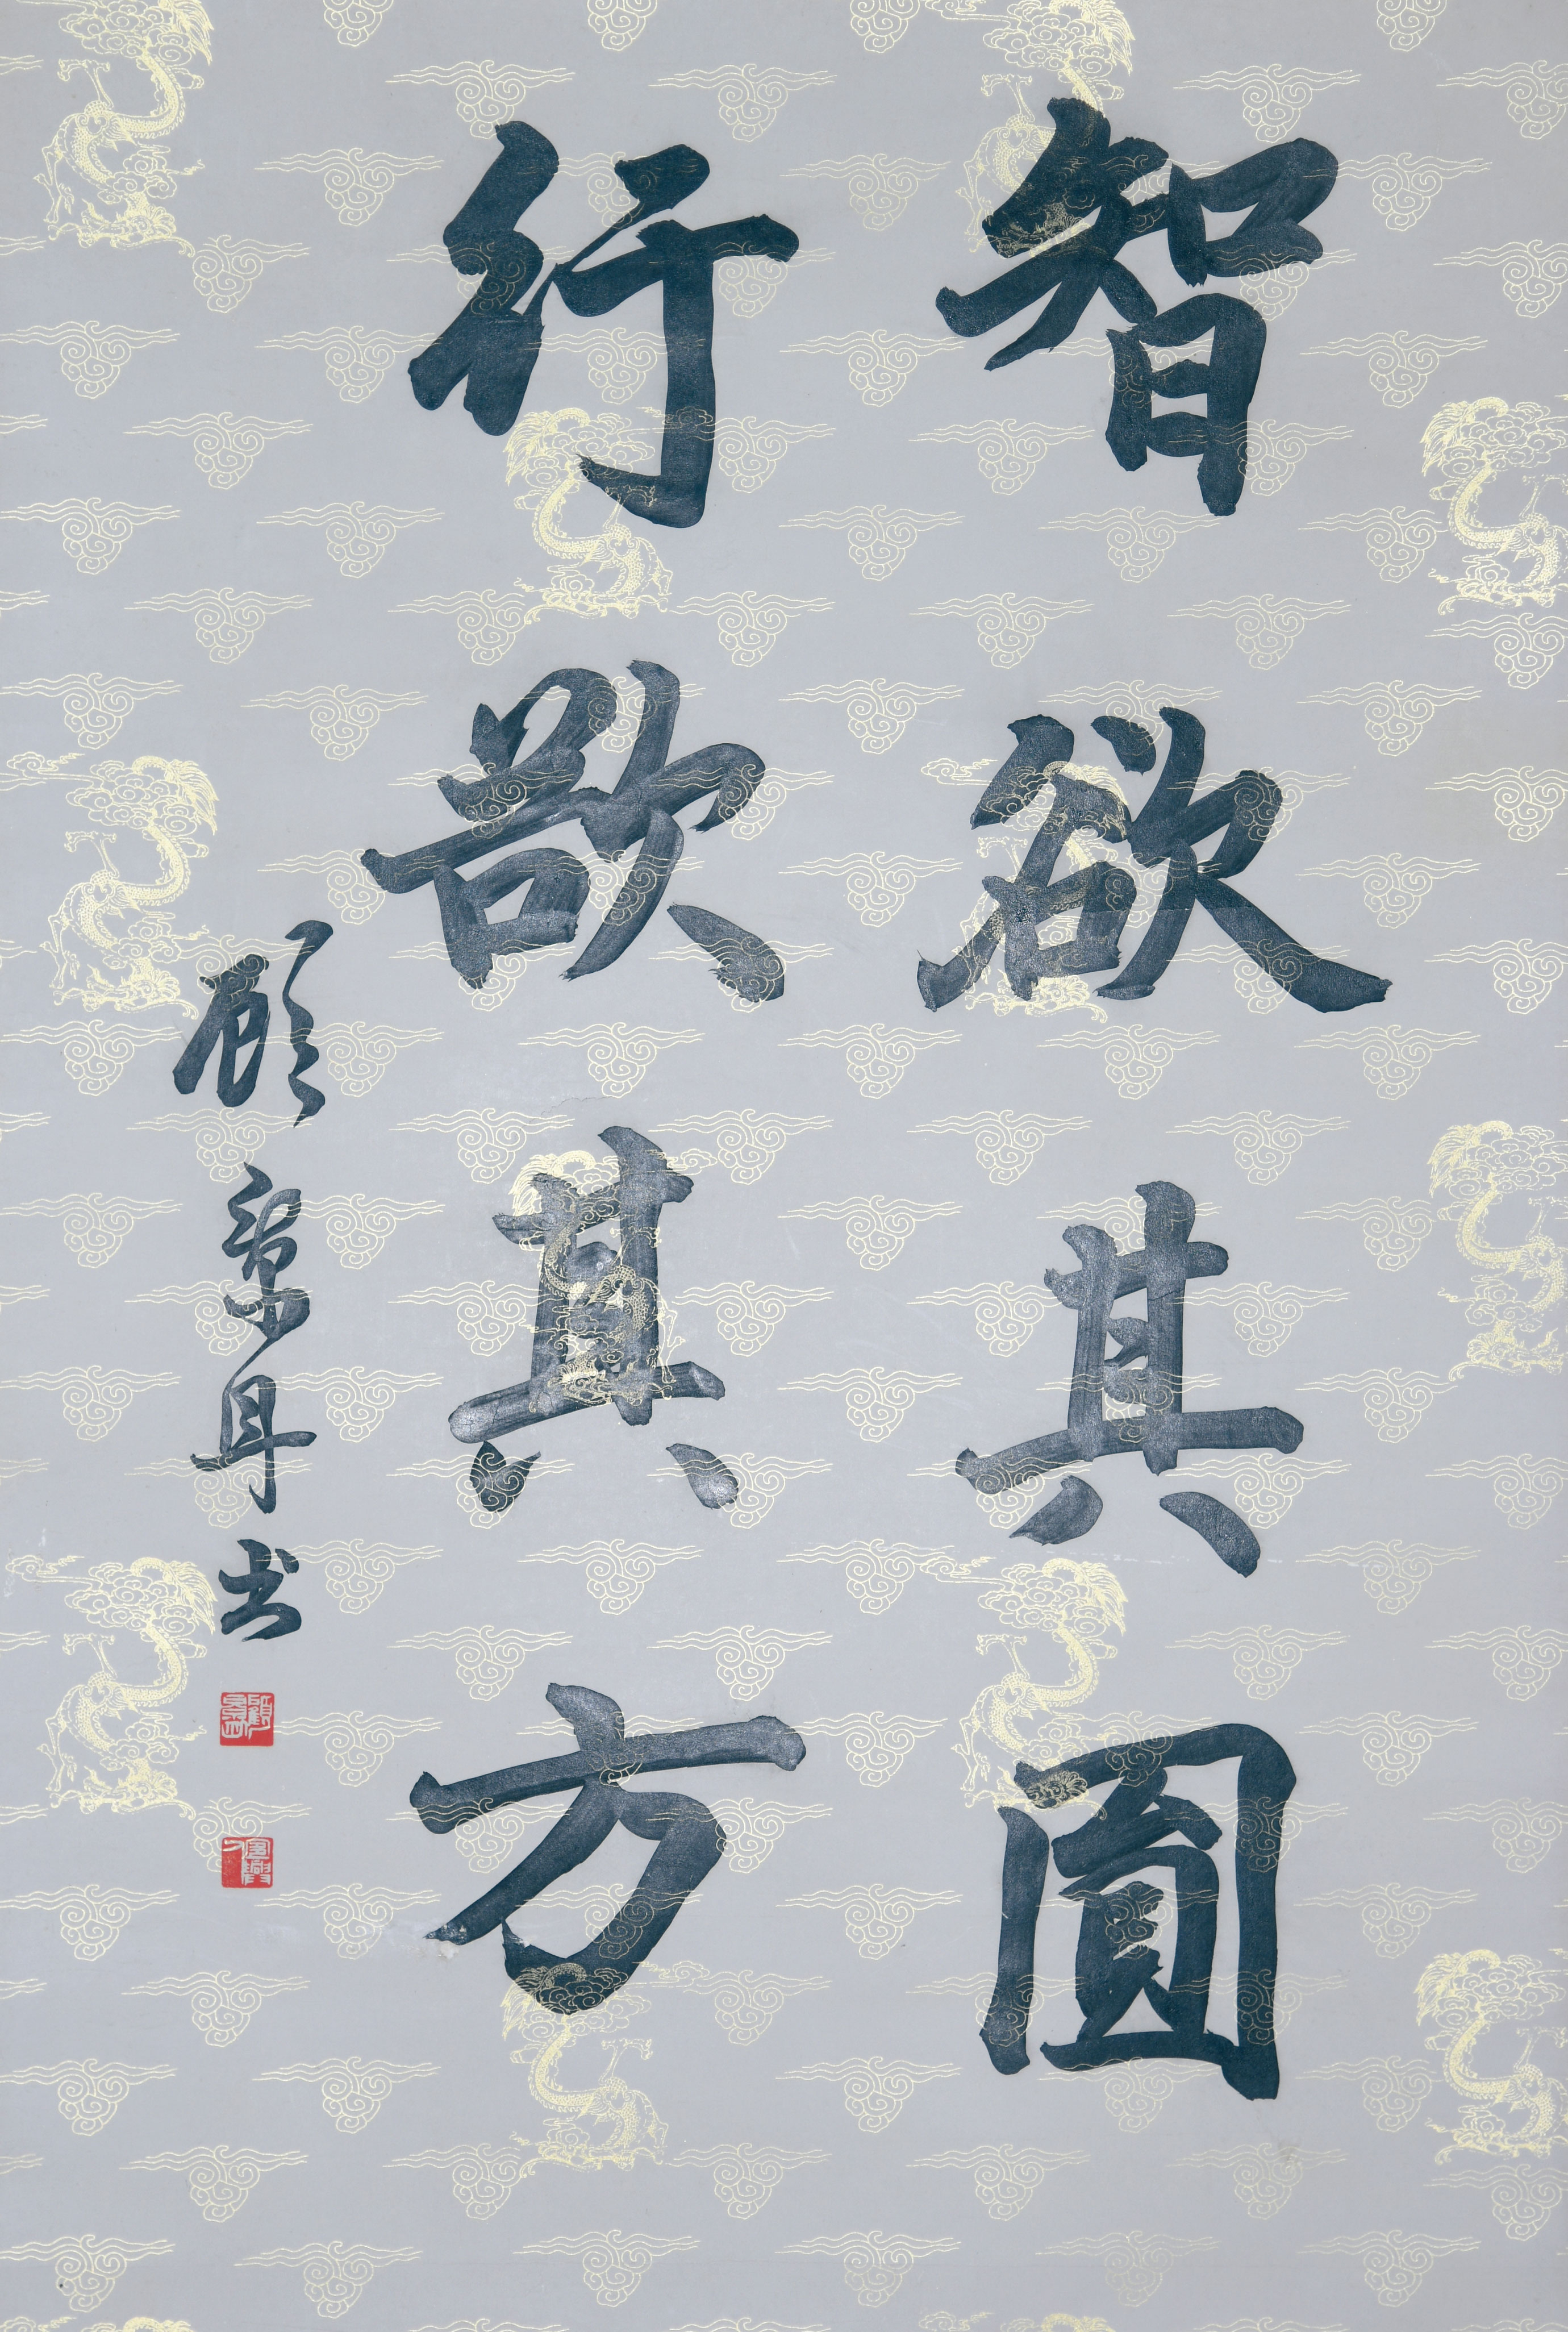 智欲其圓
行欲其方
顾书